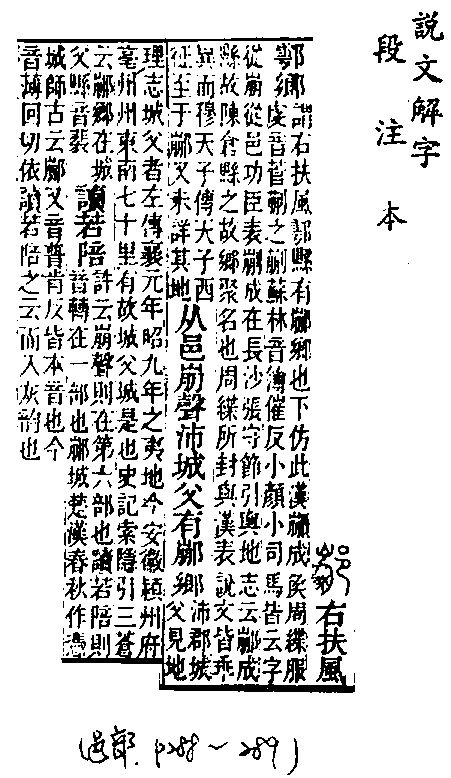 說文解字
段注本
䣙右扶風
鄠鄉謂右扶風鄠縣有䣙鄉也下仿此漢䣙成侯周緤服
虔音菅蒯之蒯蘇林音簿催反小顏小司馬皆云字
從崩從邑功臣表䣙成在長沙張守節引輿地志云䣙成
縣故陳倉縣之故鄉聚名也周緤所封與漢表說文皆乖
異而穆天子傳天子西
征至于䣙又未詳其地
从邑崩聲沛城父有䣙鄉
沛郡城
父見地
理志城父者左傳襄元年昭九年之夷地今安徽潁州府
亳州州東南七十里有故城父城是也史記索隱引三蒼
云䣙鄉在城
父縣音裴
讀若陪
許云崩聲則在第六部也讀若陪則
音轉在一部也䣙城楚漢春秋作憑
城師古云䣙又音普肯反皆本音也今
音薄回切依讀若陪之云而入灰韵也
(邑部. p288～289)